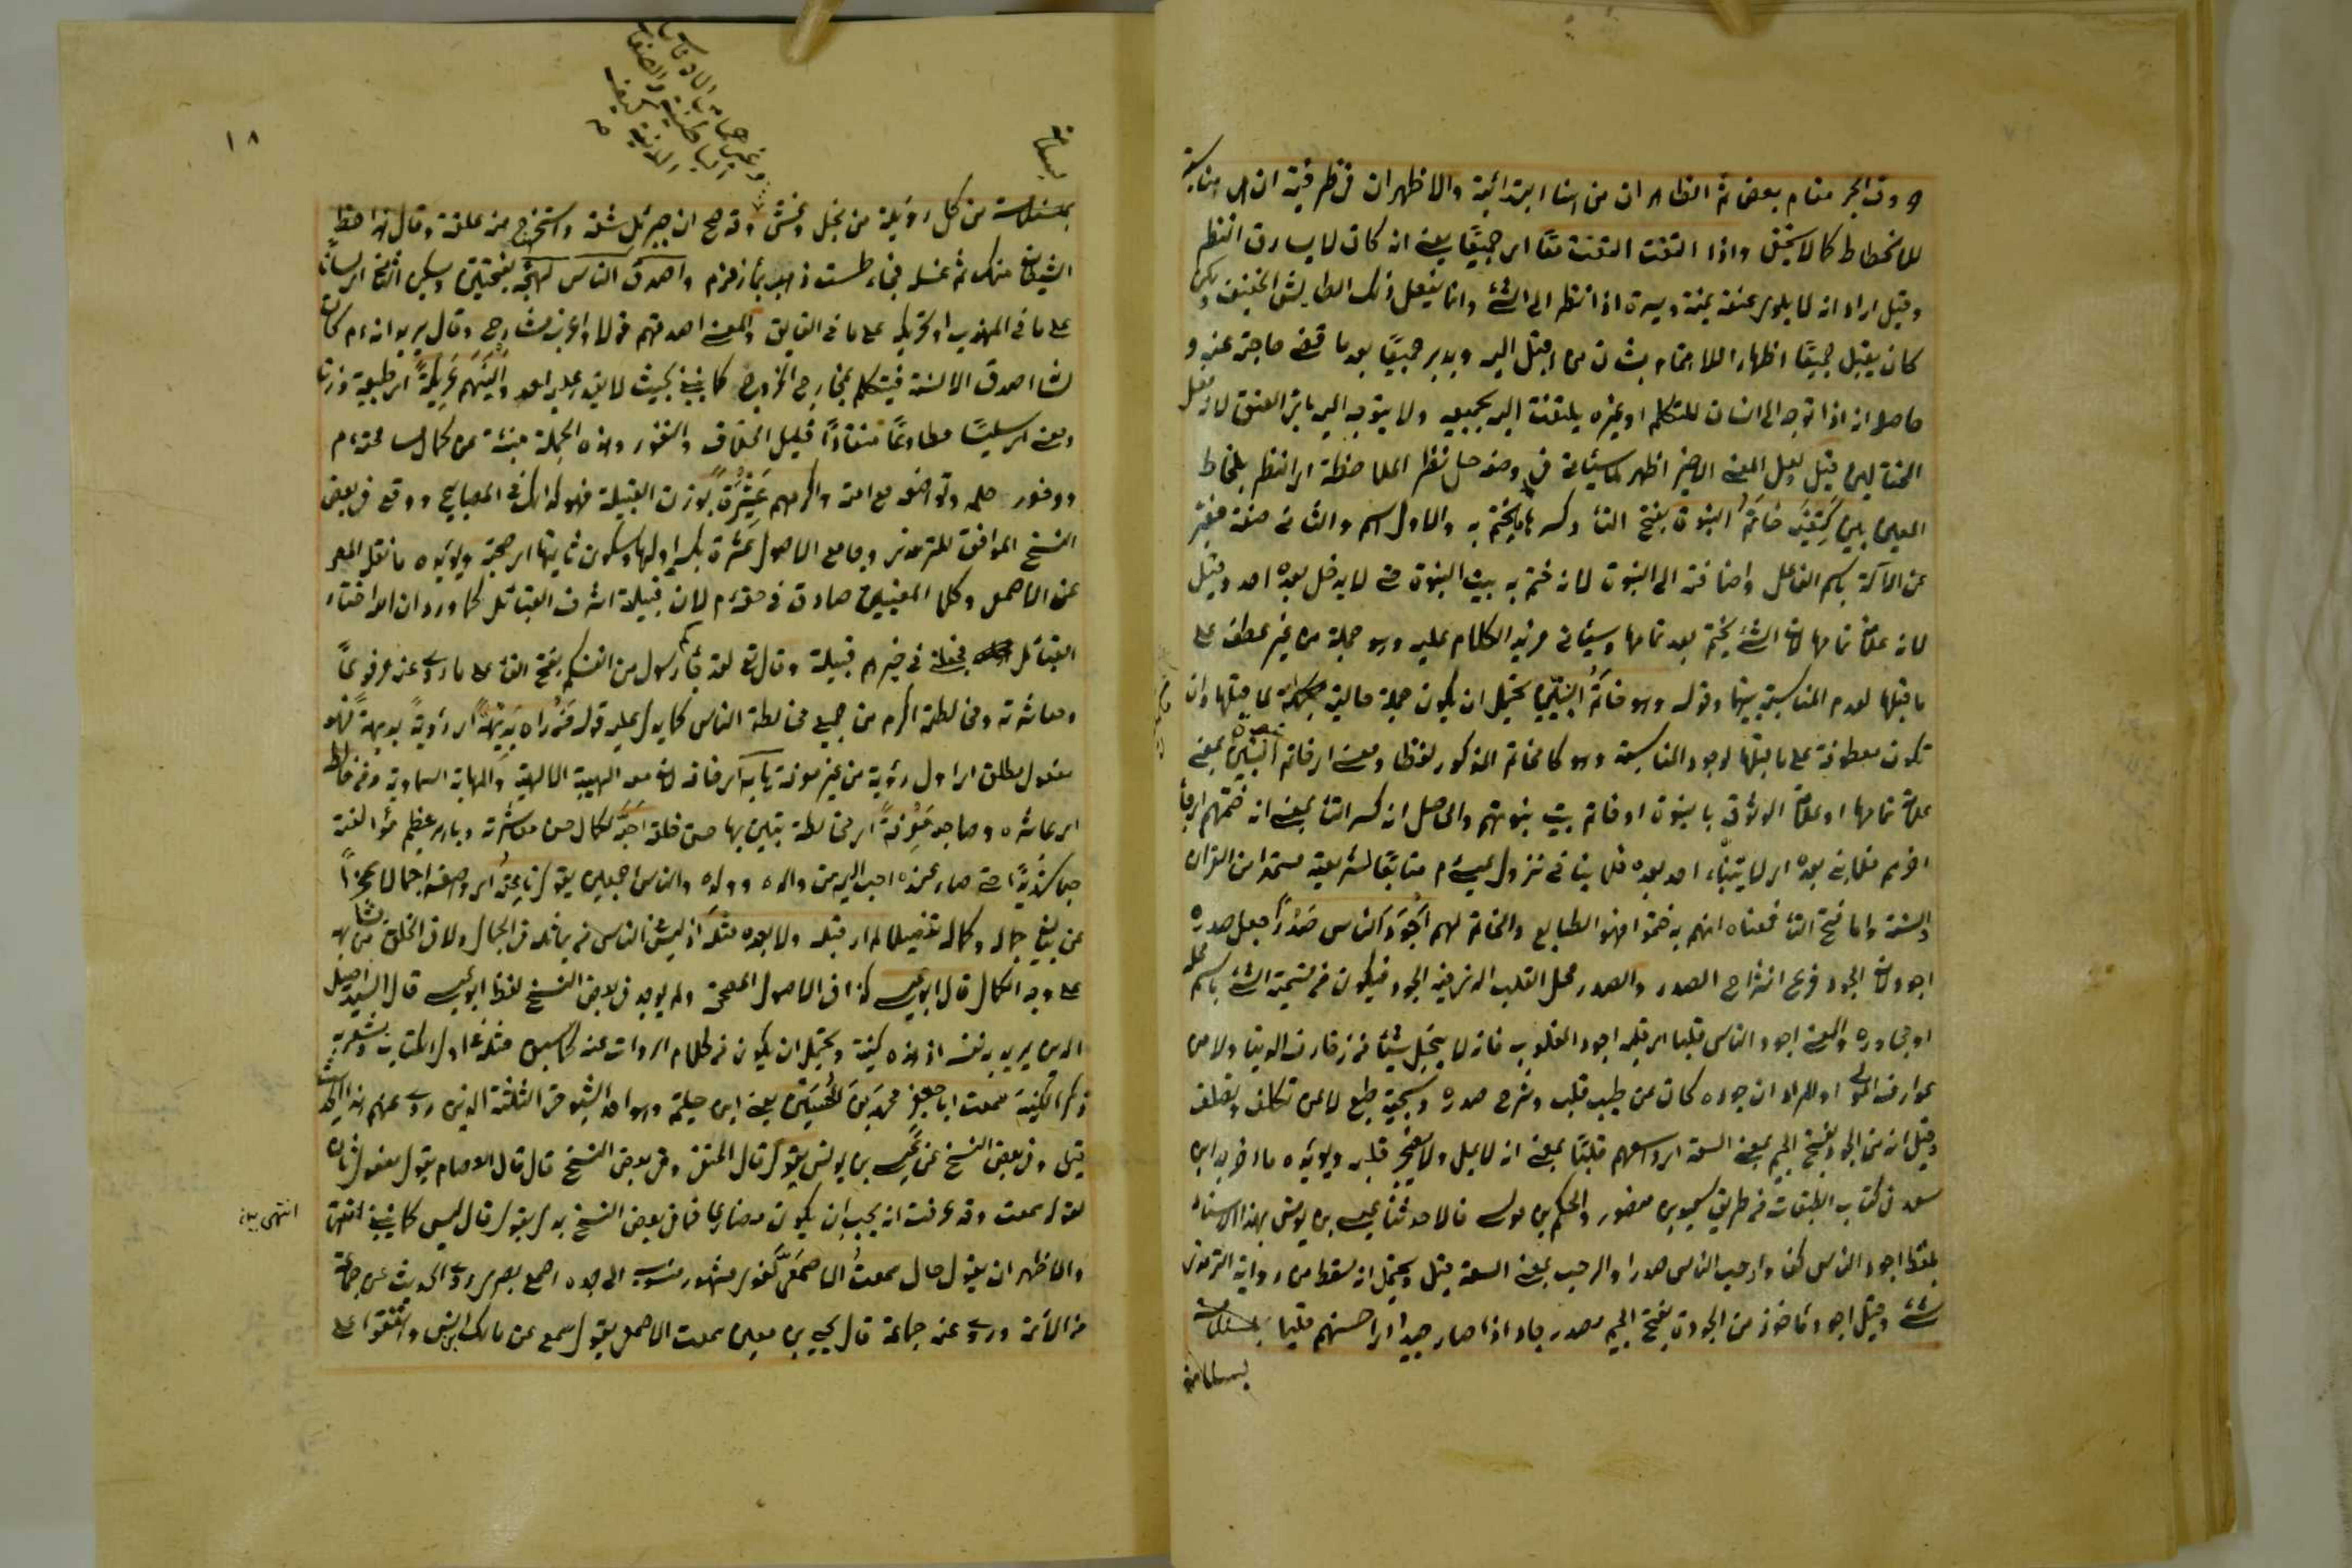 حروف الجر مقام بعض ثم الظاهر ان من هنا ابتدائية والاظهر ان في ظرفية
للانخطاط كما لا يخفى واذا التفت التفت معًا اي جميعًا يعني انه كان لا يسارق النظر
وقيل اراد انه لا يلوي عنقه يمنة ويسرة اذا نظر الى الشئ وانما يفعل ذلك الطايش الخفيف ولكن
كان يقبل جميعًا اظهارا للاهتمام بشان من اقبل اليه ويدبر جميعًا بعد ما قضى حاجته عنه و
حاصله انه اذا توجه الى انسان للتكلم او غيره يلتفت اليه بجميعه ولا يتوجه اليه بلي العنق لانه فعل
المختالين قيل لعل المعنى الاخير اظهر لما سيئاتي في وصفه جل نظره الملاحظة اي النظر بلحاظ
العين بين كتفيه خاتم النبوة بفتح التاء وكسرها ما يختم به والاول اسم والثاني صفة
عن الآلة باسم الفاعل واضافته الى النبوة لانه ختم به بيت النبوة حتى لا يدخل بعده احد وقيل
لانه علامة تمامها لان الشئ يختم بعد تمامها وسيئاتي مزيد الكلام عليه وهو جملة من غير عطف على
ما قبلها لعدم المناسبة بينهما وقوله وهو خاتم النبيين يحتمل ان يكون جملة حالية مكملة لما قبلها وان
تكون معطوفة على ما قبلها لوجود المناسبة وهو كالخاتم المذكور لفظا ومعنى اي خاتم النبيين بمعنى
علامة تمامها او علامة الوثوق بالنبوة او خاتم بيت نبوتهم والحاصل ان كسر التاء بمعنى انه ختمهم اي جاء
اخرهم فلا نبي بعده اي لا يتنبأ احد بعده فلا ينافي نزول عيسى عم متابعًا لشريعته مستمدا من القران
والسنة واما فتح التاء فمعناه انهم به ختموا فهو الطابع والخاتم لهم اجود الناس صدرًا جعل صدره
اجود لان الجود فرع انشراح الصدر والصدر محل القلب الذي فيه الجود فيكون من تسمية الشئ باسم محله
او مجاوره والمعنى اجود الناس قلبا اي قلبه اجود القلوب فانه لا يبخل شيئا من زخارف الدنيا ولا من
عوارف المولى او المراد ان جوده كان عن طيب قلب وشرح صدره وسجية طبع لا عن تكلف وتصلف
وقيل انه من الجود بفتح الجيم بمعنى السعة اي اوسعهم قلبًا بمعنى انه لا يمل ولا يضجر قلبه ويؤيده ما اخرجه ابن
سعد في كتاب الطبقات من طريق سعيد بن منصور والحكم بن موسى قالا حدثنا عيسى بن يونس بهذا الاسناد
بلفظ اجود الناس كفا وارحب الناس صدرا والرحب بمعنى السعة قيل ويحتمل انه سقط من رواية الترمذي
شئ وقيل اجود مأخوذ من الجودة بفتح الجيم مصدر جاد اذا صار جيدا اي احسنهم قلبا
بسلامة
١٨
بسلامة
وغير هما من الاوصاف
الباطنية والصفات
من كل رذيلة من بخل وغش وقد صح ان جبرئيل شقه واستخرج منه علقة وقال هذا حظ
الشيطان منك ثم غسله في طست ذهب بماء زمزم واصدق الناس لهجة بفتحتين ويسكن الثاني اي لسانًا
على ما في المهذب او تحريكه على ما في الفايق والمعنى اصدقهم قولا واغرب شارح وقال يريد انه عم كان
لسانه اصدق الالسنة فيتكلم بمخارج الحروف كما ينبغي بحيث لا يقدر عليه احد والينهم عريكة اي طبيعة وزنًا
ومعنى اي سلسًا مطاوعًا منقادًا قليل الخلاف والنفور وهذه الجملة مبنئة عن كمال مسامحته عم
ووفور حلمه وتواضعه مع امته واكرمهم عشيرة بوزن القبيلة فهو كذلك في المصابيح ووقع في بعض
النسخ الموافق للترمذي وجامع الاصول عشرة بكسر اولها وسكون ثانيها اي صحبة ويؤيده ما نقل المص
عن الاصمعي وكلا المعنيين صادق في حقه عم لان قبيلته اشرف القبائل كما ورد ان الله اختار
القبائل فجعلني في خيرهم قبيلة وقال تعالى لقد جاءكم رسول من انفسكم بفتح الفاء على ما روى عنه مرفوعًا
ومعاشرته ومخالطته اكرم من جميع مخالطة الناس كما يدل عليه قوله من راه بديهة اي رؤية بديهة فهو
مفعول مطلق اي اول رؤية من غير معرفة هابه اي خافه لان معه الهيبة الالهية والمهابة السماوية ومن خالطه
اي عاشره وصاحبه معرفة اي مخالطة تبين بها حسن خلقه احبه لكمال حسن معاشرته وباهر عظيم مؤالفته
حبا شديدًا حتى صار عنده احب اليه من والده وولده والناس اجمعين يقول ناعته اي واصفه اجمالا عجزًا
عن بيان جماله وكماله تفصيلا لم ار قبله ولا بعده مثله اذ ليس في الناس من يماثله في الجمال ولا في الخلق من يشابهه
على وجه الكمال قال ابو عيسى كذا في الاصول المصححة ولم يوجد في بعض النسخ لفظ ابو عيسى قال السيد اصيل
الدين يريد به نفسه اذ هذه كنيته ويحتمل ان يكون من كلام الرواة عنه كما سبق مثله في اول الكتاب ويشعر به
ذكر الكنية سمعت ابا جعفر محمد بن الحسين يعني ابن حليمة وهو احد الشيوخ الثلثة الذين روى عنهم هذا الحديث
قيل وفي بعض النسخ عن عيسى بن يونس يقول قال المتقن وفي بعض النسخ قال قال العصام يقول مفعول ثان
لقوله سمعت وقد عرفت انه يجب ان يكون مضارعا فما في بعض النسخ بدل يقول قال ليس كما ينبغي انتهى
والاظهر ان يقول حال سمعت الاصمعي لغوي مشهور منسوب الى جده اصمع بصري روى الحديث عن جماعة
من الائمة وروى عنه جماعة قال يحيى بن معين سمعت الاصمعي يقول سمع عن مالك بن انس واتفقوا على
انتهى